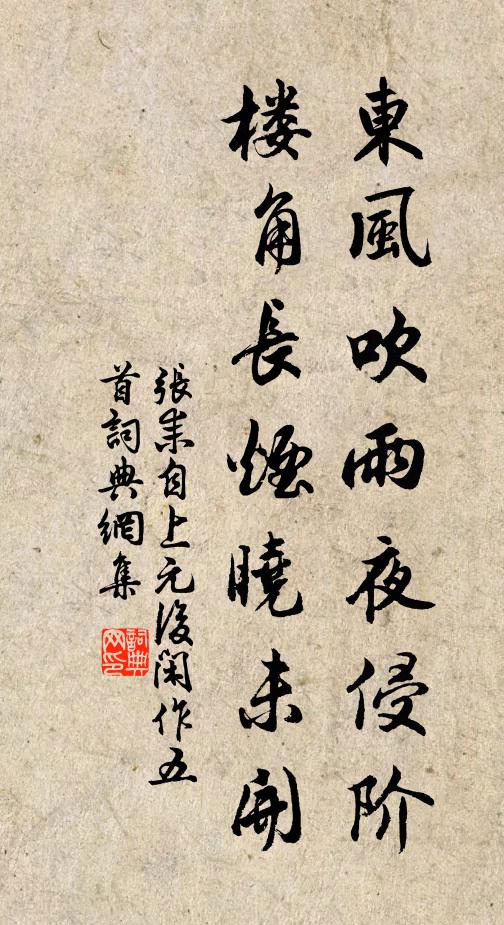 東風吹雨夜侵阶
楼角長煙曉未開
張耒自上元後閑作五
首詞典網集
詞典網印